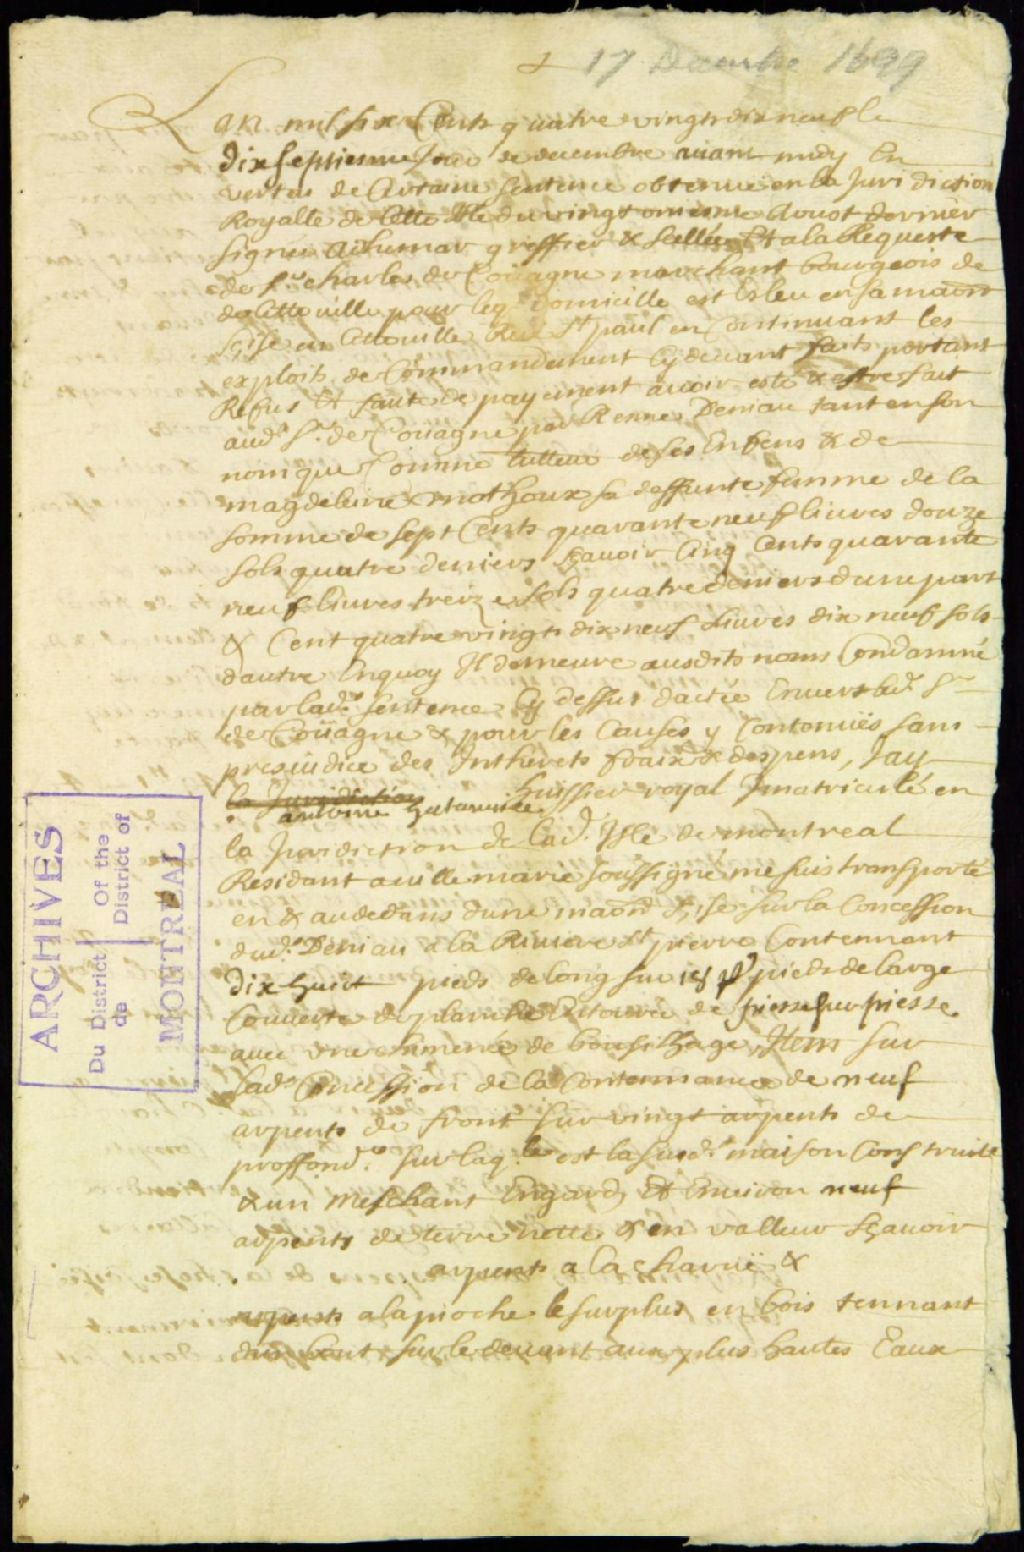 17 Decembre 1699
Lan mil six Cents quatre vingts dix neuf le
dix septiesme Jour de decembre auant midy En
vertus de Certaine Sentence obtenue en la Juridiction
Royalle de Cette Isle du vingt onziesme Aoust dernier
signée Adhemar greffier & scellée Et a la Requeste
de Sr. Charles de Coüagne marchant bourgeois de
de Cette ville pour leql. domicille est Esleu en sa maōn
size en Cetteville Rue St. paul en Continuant les
exploits de Commandement Cy deuant faits portant
Refus Et faute de payement auoir esté & estre fait
aud. Sr. de Coüagne par Renne Deniau tant en son
nom que Comme tutteur de ses Enfens & de
magdeleine mothoux sa deffunte femme de la
somme de sept Cents quarante neuf liures douze
sols quatre deniers Sçauoir Cinq Cents quarante
neuf liures treize sols quatre deniers dune part
& Cent quatre vingts dix neuf Liures dix neuf sols
dautre Enquoy Il demeure ausdits noms Condamné
par lad. sentence Cy dessus dactée Enuers led. Sr
de Coüagne & pour les Causes y Contenuës sans
presiudice des Intherets fraix & despens, Jay
la Juridiction huissier royal Jmatriculé en
antoine hatanville
la Juridiction de lad. Isle de montreal
Residant a ville marie soussigné me suis transporté
en & audedans dune maōn size sur la Concession
dud. Deniau a la Riuiere St pierre Contennant
dix huict pieds de long sur pieds de large
Couuerte de planche Entourée de piesse sur piesse
auec vne chemineé de bousillage, Item sur
lad. Concession de la Contennance de neuf
arpents de front sur vingt arpents de
proffondr. sur laqle. est la susd. maison Construitte
& un meschant Engard, Et Enuiron neuf
arpents de terre nette & en valleur Sçauoir
arpents a la charuë &
arpents a la pioche le surplus en bois tennant
dun bout sur le deuant aux plus hautes Eaux
ARCHIVES
Du District de
Of the District of
MONTREAL